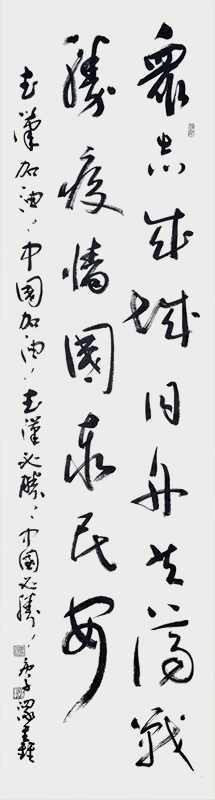 众志成城同舟共济战
胜疫情国泰民安
武汉加油！中国加油！武汉必胜！中国必胜！庚子